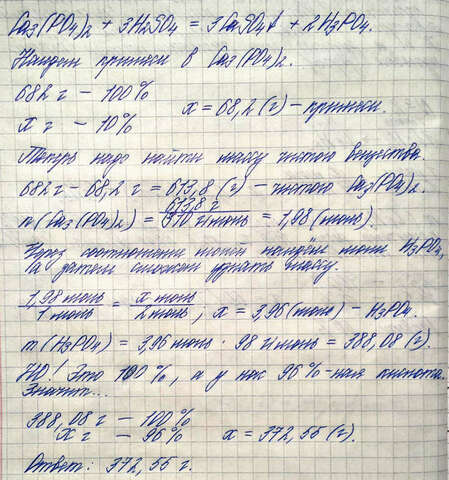 Ca₃(PO₄)₂ + 3H₂SO₄ = 3CaSO₄↓ + 2H₃PO₄.
Найдем примеси в Ca₃(PO₄)₂.
682 г – 100%
x г – 10%
x = 68,2 (г) – примеси.
Теперь надо найти массу чистого вещества.
682 г – 68,2 г = 613,8 (г) – чистого Ca₃(PO₄)₂.
n(Ca₃(PO₄)₂) = 613,8 г / 310 г/моль = 1,98 (моль).
Через соотношение молей найдём моли H₃PO₄,
а затем сможем узнать массу.
1,98 моль / 1 моль = x моль / 2 моль, x = 3,96 (моль) – H₃PO₄.
m(H₃PO₄) = 3,96 моль · 98 г/моль = 388,08 (г).
НО! Это 100%, а у нас 96%-ная кислота.
Значит...
388,08 г – 100%
x г – 96%
x = 372,55 (г).
Ответ: 372,55 г.